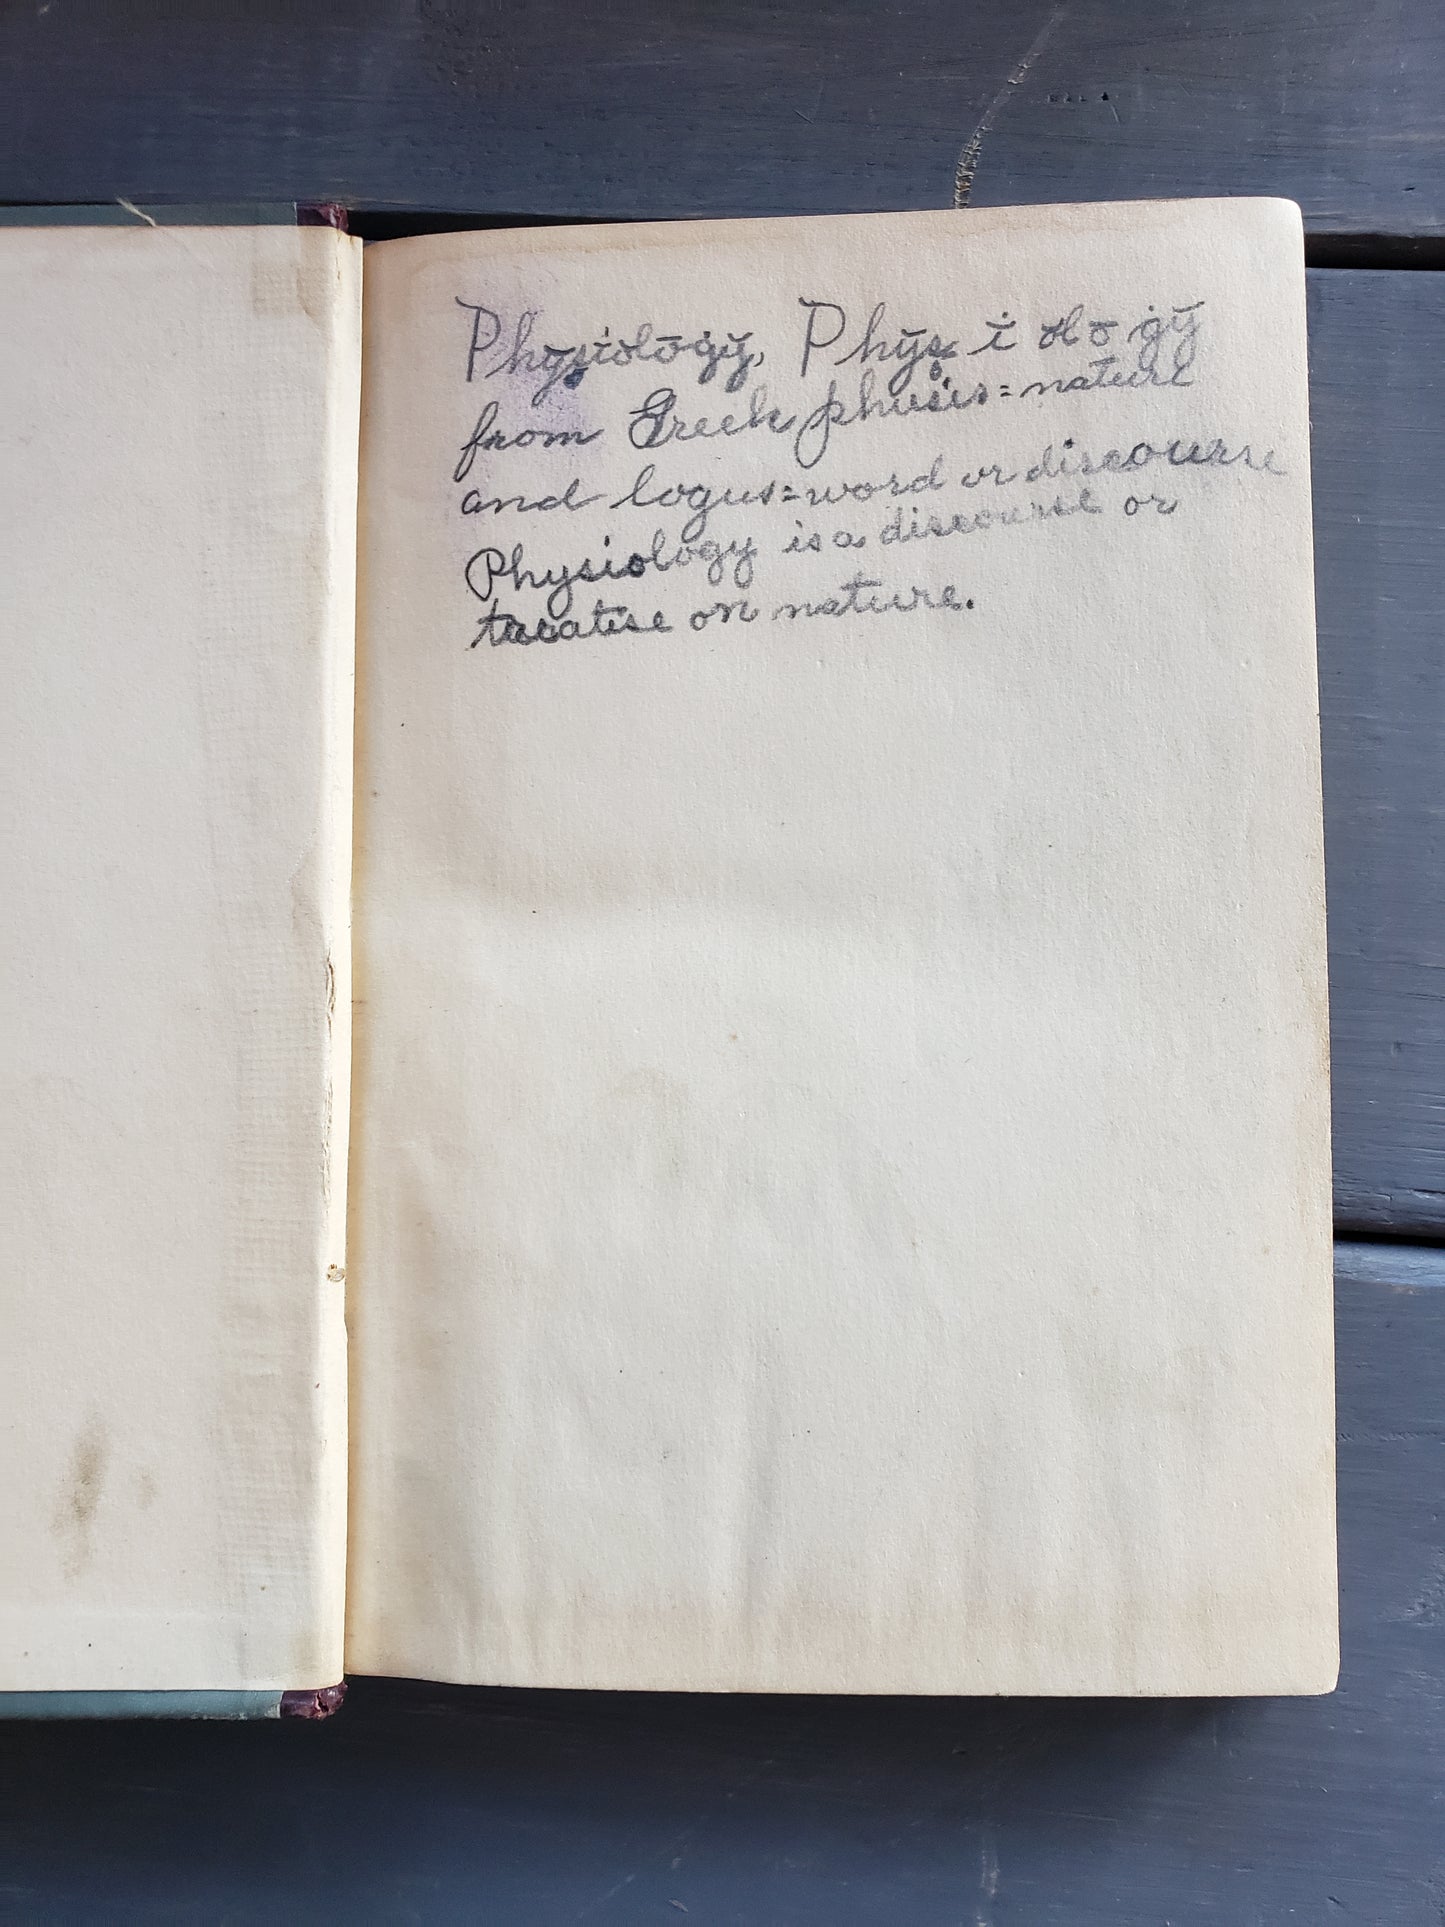 Physiology, Phys i ol o gy
from Greek phusis = nature
and logus = word or discourse
Physiology is a discourse or
treatise on nature.